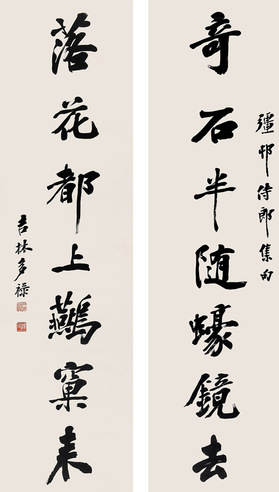 彊邨侍郎集句
奇石半随蠔鏡去
落花都上窠来
吉林多禄